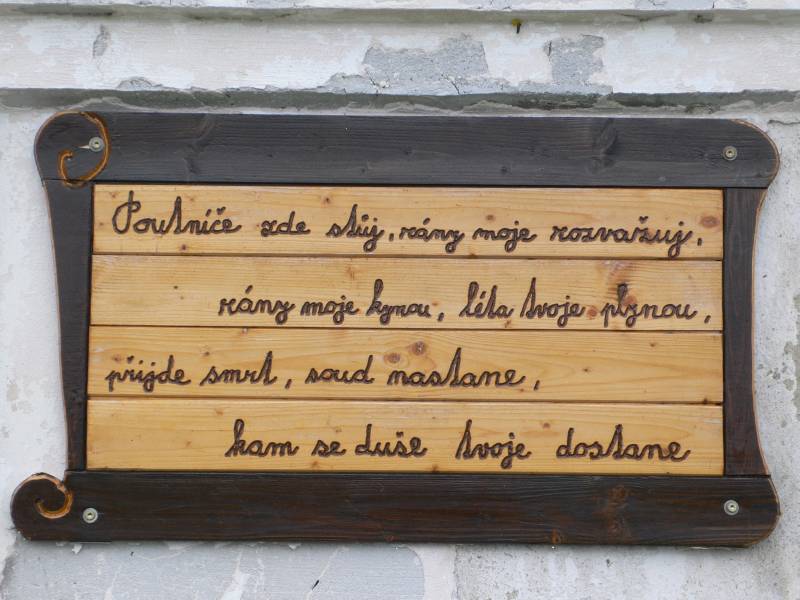 Poutníče zde stůj, rány moje rozvažuj,
rány moje kynou, léta tvoje plynou,
přijde smrt, soud nastane,
kam se duše tvoje dostane